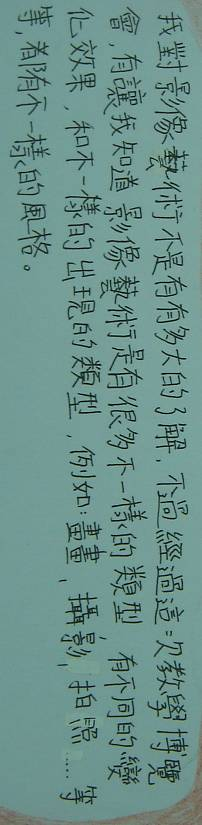 我對影像藝術不是有有多大的了解，不過經過這次教學博覽
會，有讓我知道影像藝術是有很多不一樣的類型 有不同的變
化效果，和不一樣的出現的類型，例如：畫畫、攝影、拍照……等
等，都有不一樣的風格。